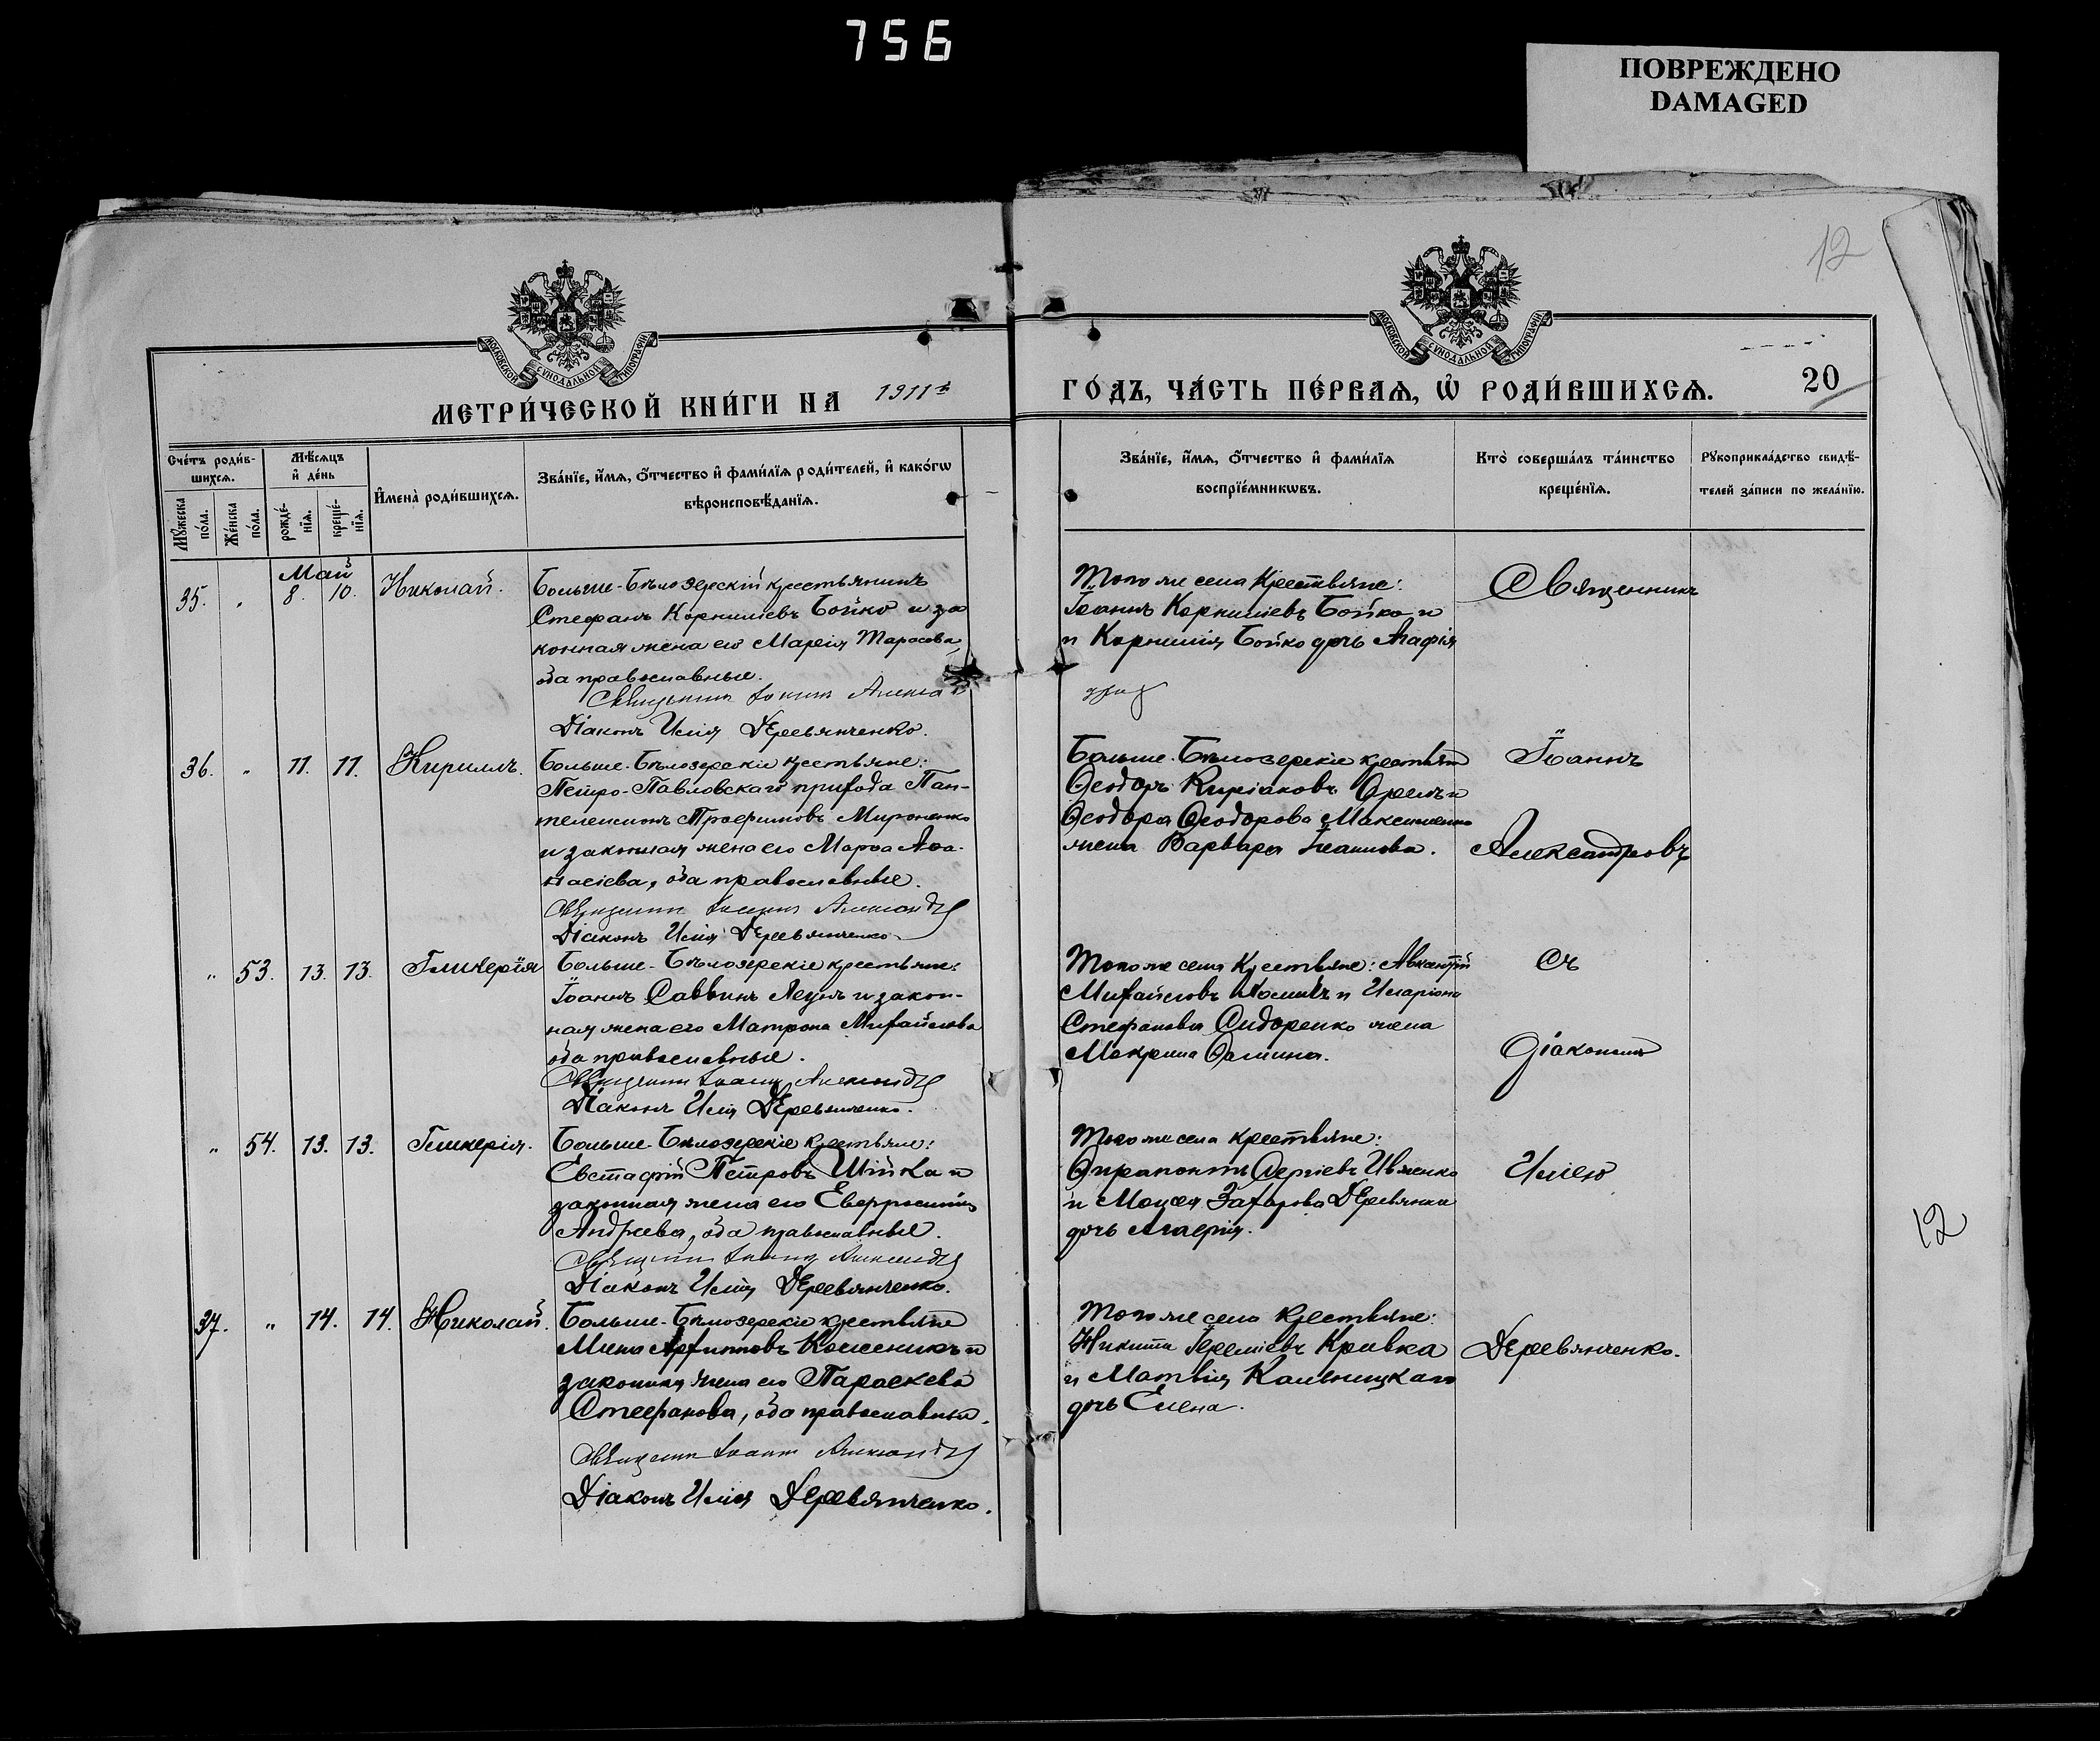 756
ПОВРЕЖДЕНО
DAMAGED
12
МОСКОВСКОЙ СУНОДАЛЬНОЙ ТИПОГРАФІИ
МОСКОВСКОЙ СУНОДАЛЬНОЙ ТИПОГРАФІИ
МЕТРИ́ЧЕСКОЙ КНИ́ГИ НА 1911й
ГО́ДЪ, ЧА́СТЬ ПЕ́РВАѦ, Ѡ҆ РОДИ́ВШИХСѦ.
20
Сче́тъ роди́в-
шихсѧ.
Мꙋ́жеска
по́ла.
Же́нска
по́ла.
Мѣ́сѧцъ
и҆ де́нь
рожде́-
нїѧ.
креще́-
нїѧ.
И҆мена̀ роди́вшихсѧ.
Зва́нїе, и҆́мѧ, ѻ҆́тчество и҆ фами́лїѧ роди́телей, и҆ како́гѡ
вѣроисповѣ́данїѧ.
Зва́нїе, и҆́мѧ, ѻ҆́тчество и҆ фами́лїѧ
воспрїе́мникѡвъ.
Кто̀ соверша́лъ та́инство
креще́нїѧ.
Рꙋкоприкла́дство свидѣ́-
телей за́писи по жела́нїю.
Май
35. " 8. 10. Николай.
Больше-Бѣлозерскій крестьянинъ
Стефанъ Корниліевъ Бойко и за
конная жена его Марія Тарасова,
оба православные.
Священникъ Іоаннъ
Діаконъ Илія Деревянченко.
Того же села крестьяне:
Іоаннъ Корниліевъ Бойко и
и Корнилія Бойко дочь Агафія
Священникъ
36. " 11. 11. Кириллъ.
Больше-Бѣлозерскіе крестьяне:
Петро-Павловскаго прихода Пан-
телеимонъ Трофимовъ Мироненко
и законная жена его Марѳа Аѳа-
насіева, оба православные.
Священникъ Іоаннъ Александр
Діаконъ Илія Деревянченко
Больше-Бѣлозерскіе крестьян
Ѳеодоръ Киріаковъ Орелъ и
Ѳеодора Ѳеодорова Максименко
жена Варвара Іоаннова.
Іоаннъ
Александровъ
" 53. 13. 13. Гликерія
Больше-Бѣлозерскіе крестьяне:
Іоаннъ Саввинъ Ягунъ и закон-
ная жена его Матрона Михайлова
оба православные.
Священникъ Іоаннъ Александр
Діаконъ Илія Деревянченко.
Того же села крестьяне: Авксентій
Михайловъ и Иларіона
Стефанова Сидоренко жена
Макрина Ѳомина.
Съ
Діакономъ
" 54. 13. 13. Гликерія.
Больше-Бѣлозерскіе крестьяне:
Евстафій Петровъ Шійка и
законная жена его Евфросинія
Андреева, оба православные.
Священникъ Іоаннъ Александр
Діаконъ Илія Деревянченко.
Того же села крестьяне:
Ѳирапонтъ Сергіевъ Ивженко
и Моисея Захарова Деревянки
дочь Агафія.
Иліею
12
37. " 14. 14. Николай.
Больше-Бѣлозерскіе крестьяне
Мина Архиповъ Колесникъ и
законная жена его Параскева
Стефанова, оба православные.
Священникъ Іоаннъ Александр
Діаконъ Илія Деревянченко.
Того же села крестьяне:
Никита Іереміевъ Кривка
и Матвія Калницкаго
дочь Елена.
Деревянченко.